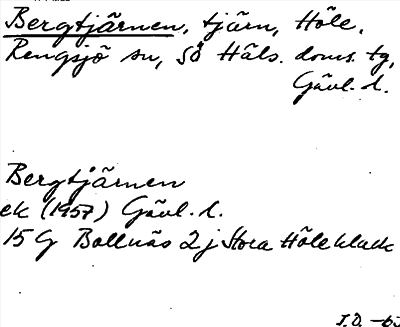 Bergtjärnen, tjärn, Höle,
Rengsjö sn, SÖ Häls. doms. tg,
Gävl. l.
Bergtjärnen
ek (1957) Gävl. l.
15 G Bollnäs 2 j Stora Höleklack
I.D. -63